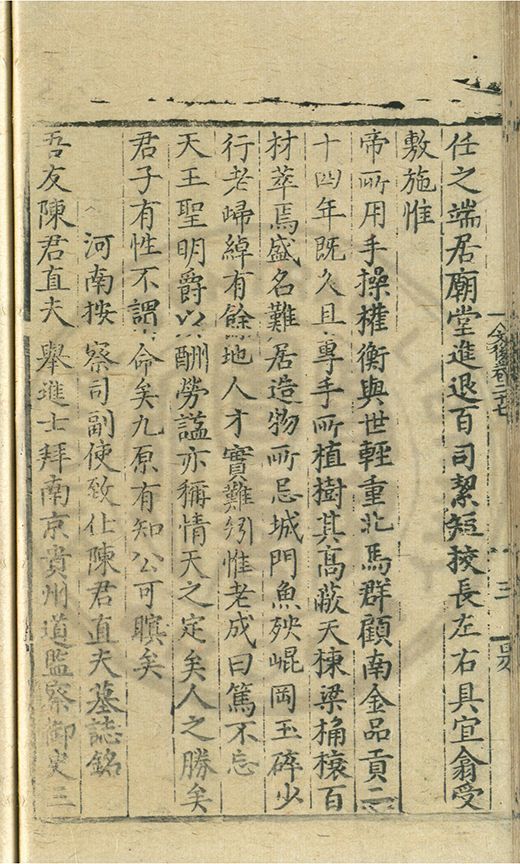 任之端居廟堂進退百司絜短挍長左右具宜翕受
敷施惟
帝所用手操權衡與世軽重北馬群顧南金品貢二
十四年既久且專手所植樹其高蔽天棟梁桷榱百
材萃焉盛名難居造物所忌城門魚殃崐岡玉碎少
行老歸綽有餘地人才實難矧惟老成曰篤不忘
天王聖明爵以酬勞謚亦稱情天之定矣人之勝矣
君子有性不謂命矣九原有知公可瞑矣
河南按察司副使致仕陳君直夫墓誌銘
吾友陳君直夫舉進士拜南京貴州道監察御史三
文後卷二十七
三